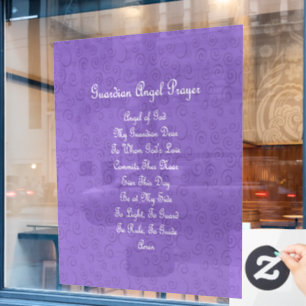 Guardian Angel Prayer
Angel of God
My Guardian Dear
To Whom God's Love
Commits Thee Here
Ever This Day
Be at My Side
To Light, To Guard
To Rule, To Guide
Amen
Z